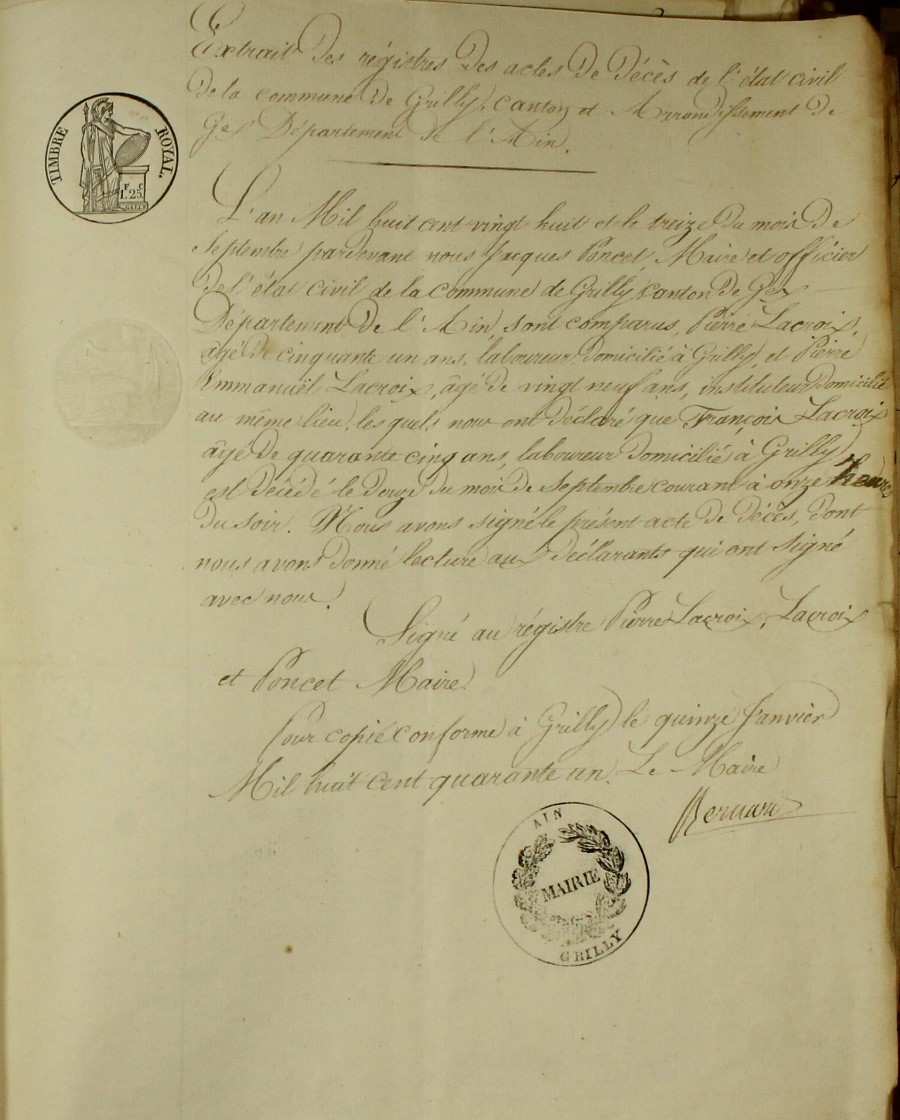 Extrait des régistres des actes de décès de l'état civil
de la commune de Grilly, canton et Arrondissement de
Gex Département de l'Ain.
TIMBRE ROYAL.
F. C.
1. 25.
L'an Mil huit cent vingt huit et le treize du mois de
Septembre pardevant nous Jacques Poncet, Maire et officier
de l'état civil de la commune de Grilly Canton de Gex
Département de l'Ain, sont comparus, Pierre Lacroix,
âgé de cinquante un ans, laboureur domicilié à Grilly, et Pierre
Emmanuël Lacroix, âgé de vingt neuf ans, instituteur domicilié
au même lieu, les quels nous ont déclaré que François Lacroix
âgé de quarante cinq ans, laboureur domicilié à Grilly
est décédé le douze du mois de Septembre courant à onze heures
du soir. Nous avons signé le présent acte de décès, dont
nous avons donné lecture aux déclarants qui ont signé
avec nous.
Signé au régistre Pierre Lacroix, Lacroix
et Poncet Maire.
Pour copie conforme à Grilly le quinze Janvier
Mil huit cent quarante un. Le Maire
AIN
MAIRIE
GRILLY